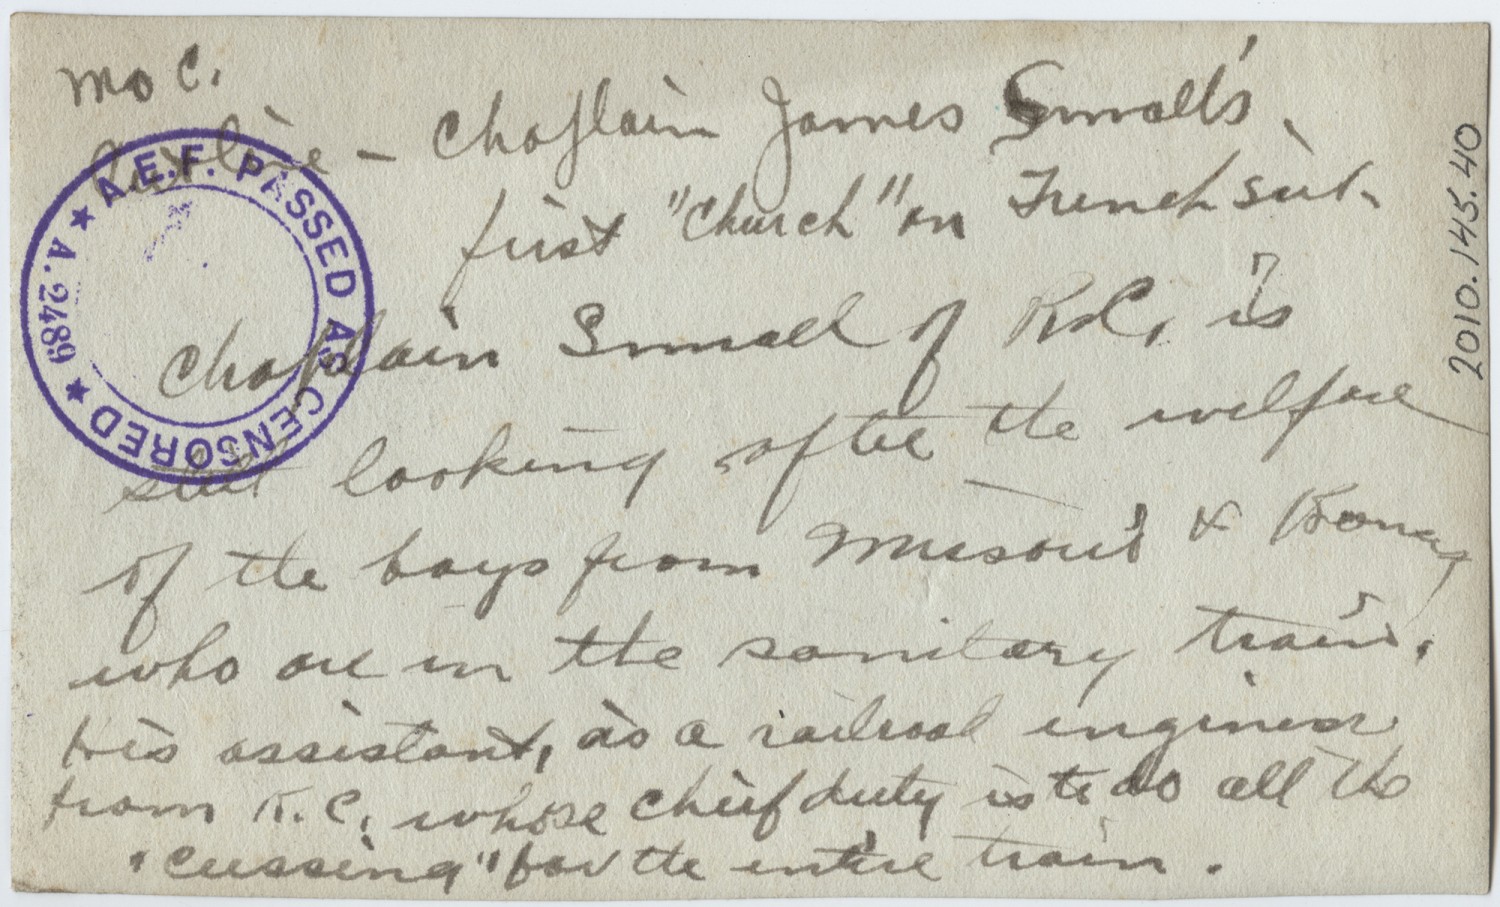 mo C.
Cutline - Chaplain James Small's
first "Church" on French soil.
Chaplain Small of K.C. is
still looking after the welfare
of the boys from Missouri & Kansas
who are in the sanitary train.
His assistant, is a railroad engineer
from K.C. whose chief duty is to do all the
"cussing" for the entire train.
A.E.F. PASSED AS CENSORED
A. 2489
2010.145.40